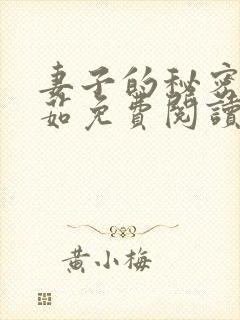 妻子的秘密
茹免費閱讀
黃小梅